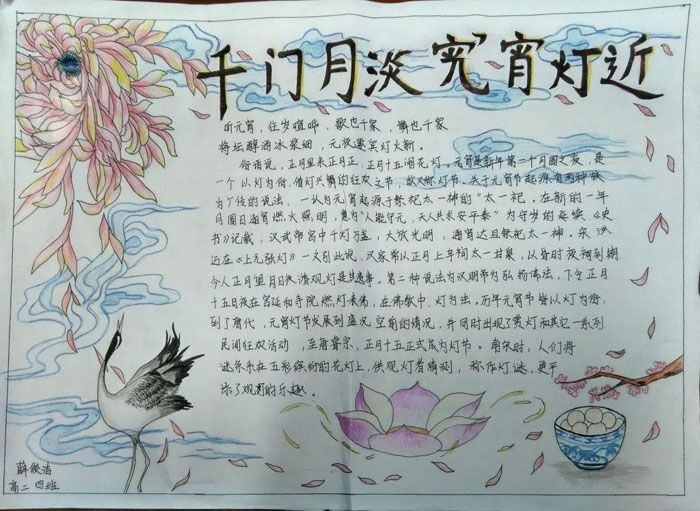 千门月淡 元宵灯近
听元宵，往岁喧哗，歌也千家，舞也千家
将坛醇酒冰浆细，元夜邀宾灯火新。
俗话说，正月里来正月正，正月十五闹花灯。元宵是新年第一个月圆之夜，是
一个以灯为俗，借灯兴舞的狂欢之节，故又称灯节。关于元宵节起源有两种较
为广传的说法，一认为元宵起源于祭祀太一神的"太一祀。在新的一年
月圆日通宵燃火照明，意为"人能守元，天人共长安平泰"为守岁的延续，《史
书》记载，汉武帝宫中千灯万盏，大放光明，通宵达旦祭祀太一神。宋 洪
迈在《上元张灯》一文引此说，汉家常以正月上辛祠太一甘泉，以昏时夜祠到明
今人正月望日夜游观灯是其遗事。第二种说法为汉明帝为弘扬佛法，下令正月
十五日夜在宫廷和寺院燃灯表佛，在佛教中，灯为法，历年元宵节皆以灯为俗，
到了唐代，元宵灯节发展到盛况空前的情况，并同时出现了赏灯和其它一系列
民间狂欢活动，至唐睿宗，正月十五正式成为灯节。南宋时，人们将
谜条系在五彩缤纷的花灯上，供观灯者猜测，称作灯谜，更平
添了观赏的乐趣。
薛
高二 四班